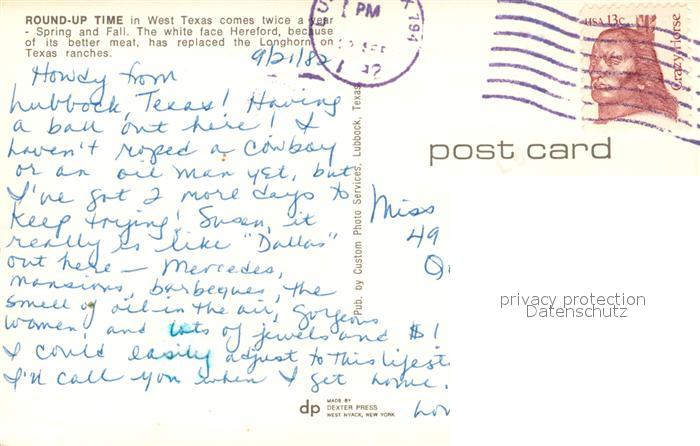 ROUND-UP TIME in West Texas comes twice a year
- Spring and Fall. The white face Hereford, because
of its better meat, has replaced the Longhorn on
Texas ranches.
PM
USA 13c
Crazy Horse
9/21/82
Howdy from
Lubbock, Texas! Having
a ball out here! I
haven't roped a cowboy
or an oil man yet, but
I've got 2 more days to
keep trying! Susan, it
really is like "Dallas"
out here — Mercedes,
mansions, barbeques, the
smell of oil in the air, gorgeous
women, and lots of jewels and $!
I could easily adjust to this lifest
I'll call you when I get home.
Pub. by Custom Photo Services, Lubbock, Texas
post card
Miss
49
privacy protection
Datenschutz
dp
MADE BY
DEXTER PRESS
WEST NYACK, NEW YORK